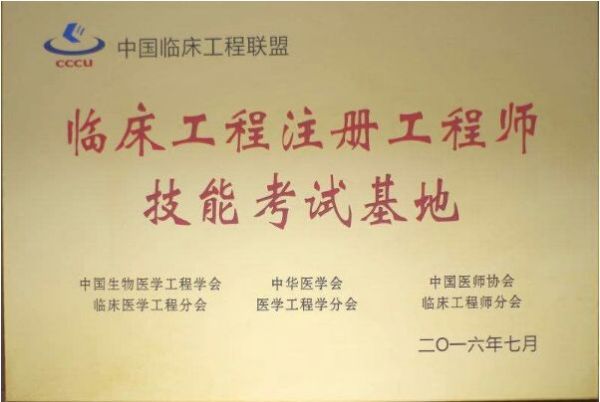 中国临床工程联盟
CCCU
临床工程注册工程师
技能考试基地
中国生物医学工程学会
临床医学工程分会
中华医学会
医学工程学分会
中国医师协会
临床工程师分会
二〇一六年七月